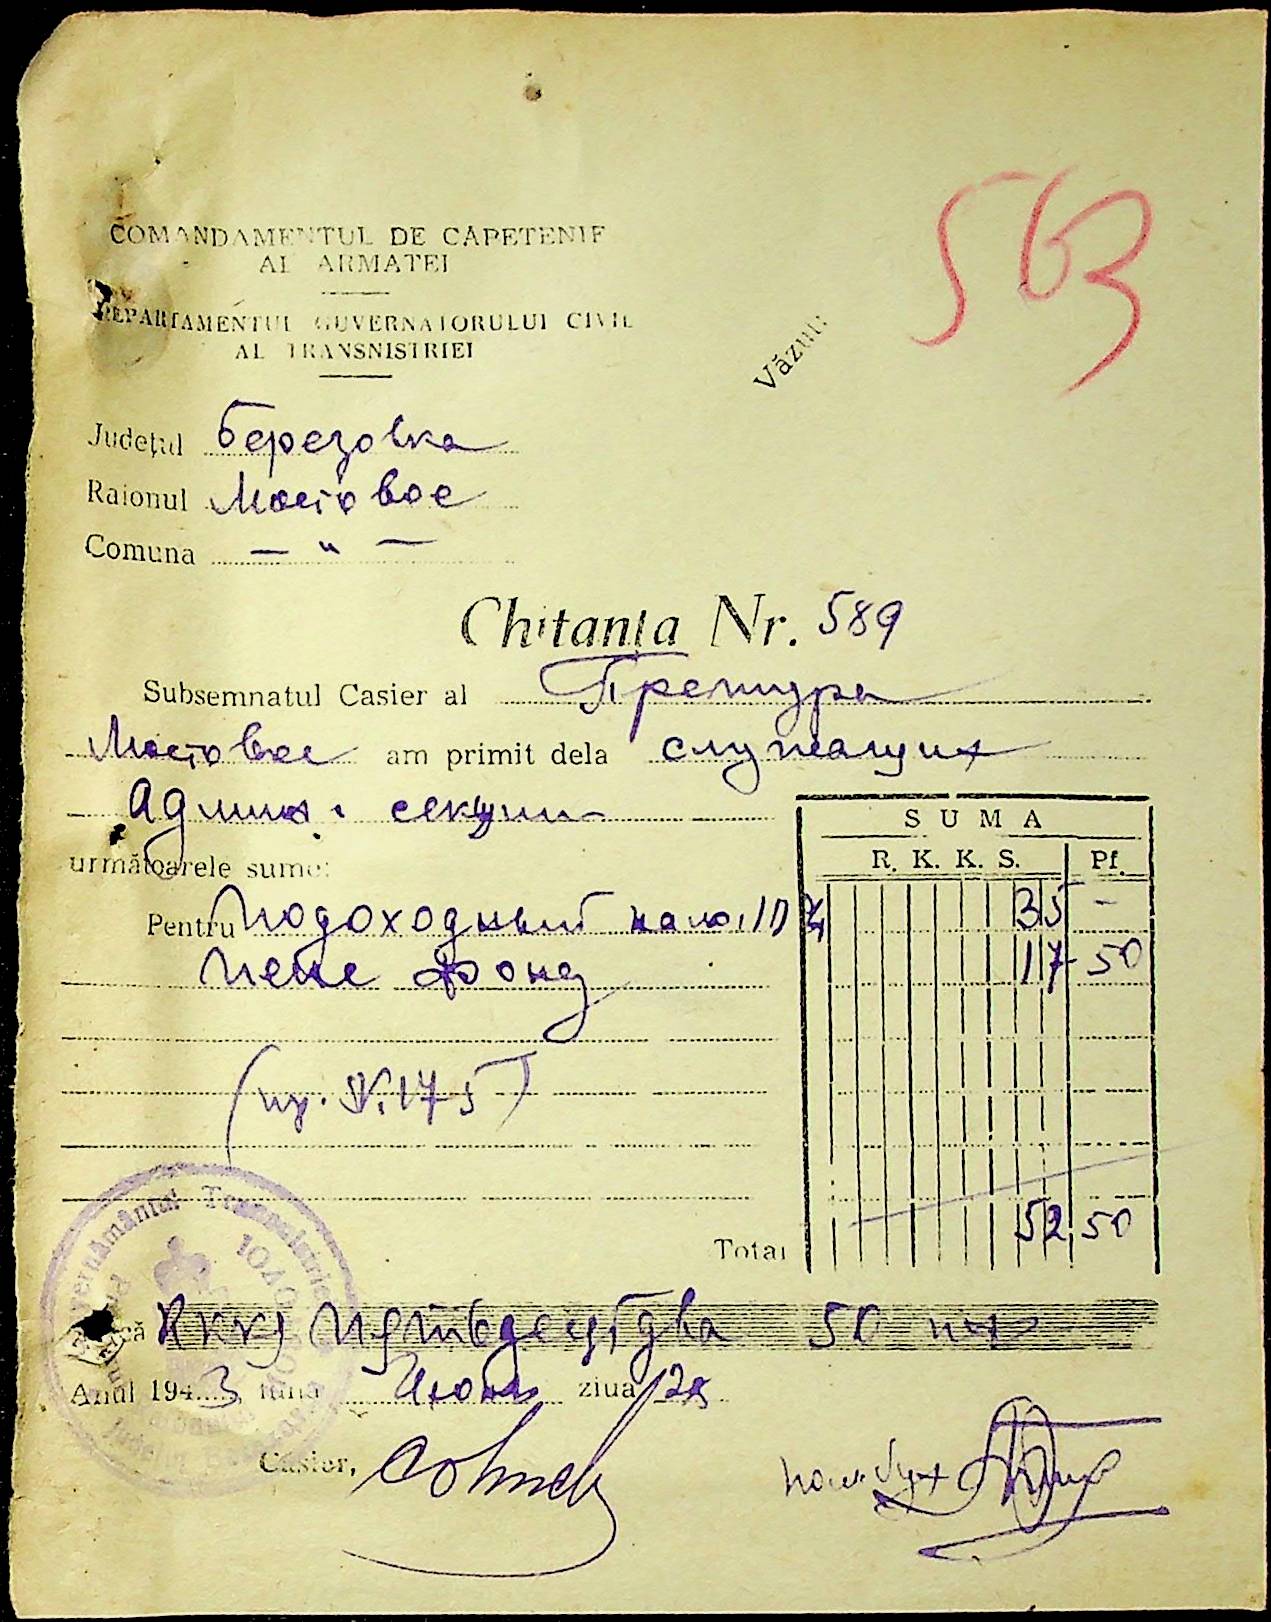 563
COMANDAMENTUL DE CAPETENIE
AL ARMATEI
DEPARTAMENTUL GUVERNATORULUI CIVIL
AL TRANSNISTRIEI
Văzut:
Județul Березовка
Raionul Мостовое
Comuna — „ —
Chitanța Nr. 589
Subsemnatul Casier al Претура
Мостовое am primit dela служащих
Админ. секции
următoarele sume:
SUMA
R. K. K. S. Pf.
Pentru Подоходный 35 -
Пенс Фонд 17 50
175)
Total 52 50
РККС 50
Anul 1943, luna Июнь ziua
Casier,
Guvernământul Transnistriei